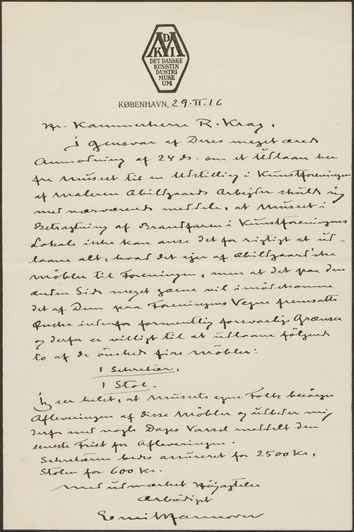 DET DANSKE
KUNSTIN
DUSTRI
MUSE
UM
KØBENHAVN, 29.II.16
Hr. Kammerherre R. Krag.
I Gensvar af Deres meget ærede
Anmodning af 24 ds. om et Udlaan her
fra Museet til en Udstilling i Kunstforeningen
af Maleren Abildgaards Arbejder skulde jeg
med nærværende meddele, at Museet i
Betragtning af Brandfaren i Kunstforeningens
Lokale ikke kan anse det for rigtigt at ud-
laane alt, hvad det ejer af Abildgaard'ske
Møbler til Foreningen, men at det paa den
anden Side meget gærne vil imødekomme
det af Dem paa Foreningens Vegne fremsatte
Ønske indenfor formentlig forsvarlig Grænser
og derfor er villigt til at udlaane følgende
to af de ønskede fire Møbler:
1 Sekretær.
1 Stol.
Jeg ser helst, at Museets egne Folk besørger
Afleveringen af disse Møbler og udbeder mig
derfor med nogle Dages Varsel meddelt den
seneste Frist for Afleveringen.
Sekretæren bedes assureret for 2500 Kr.
Stolen for 600 Kr.
Med udmærket Højagtelse
Ærbødigst
Emil Hannover